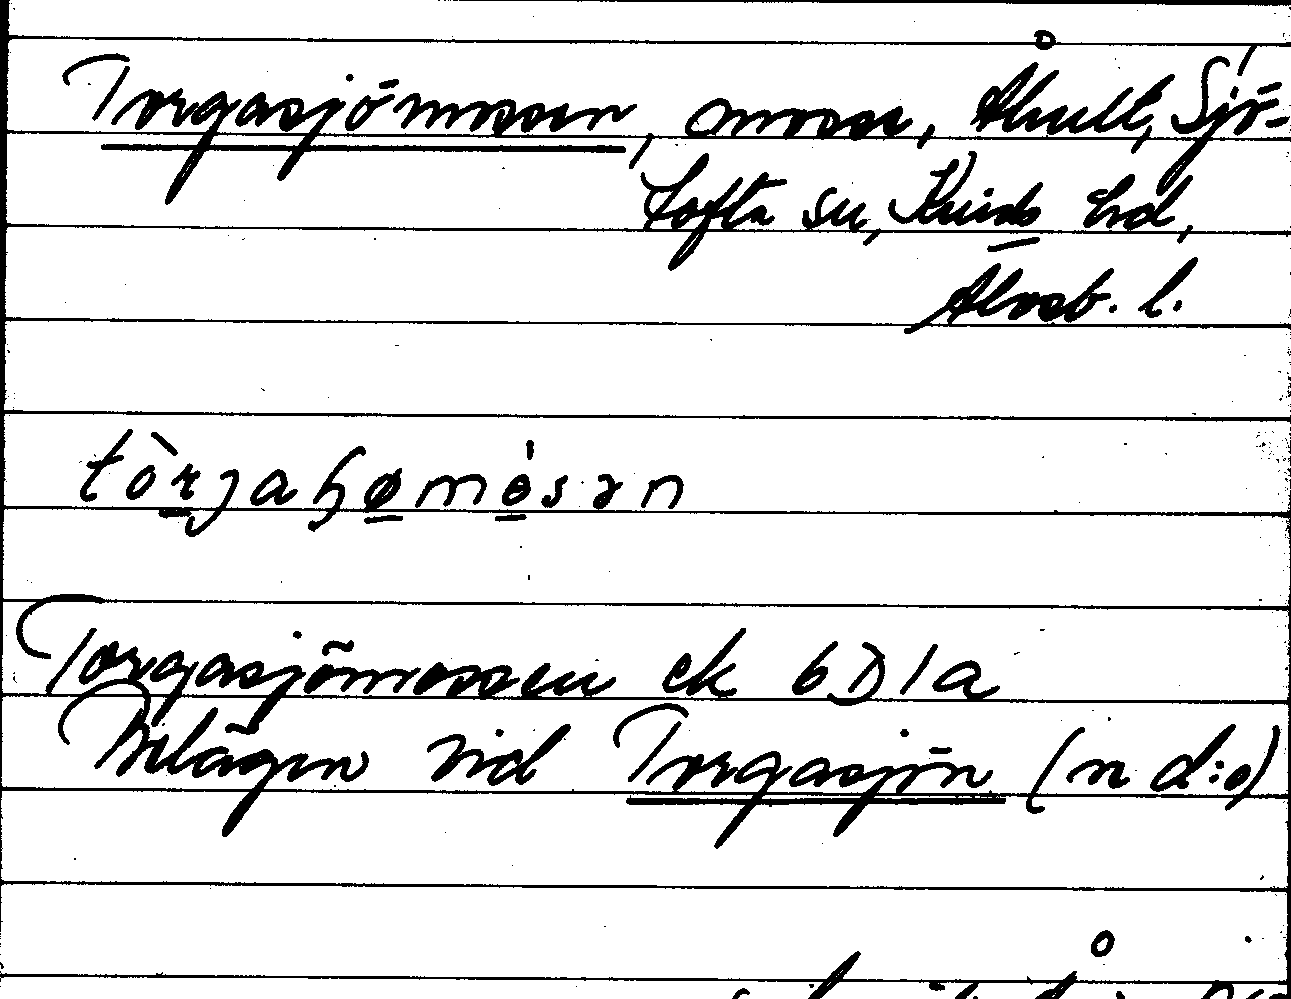 Torgasjömossen, mosse, Åhult, Sjö-
tofta sn, Kinds hd,
Älvsb. l.
tòrjaɧømósən
Torgasjömossen ek 6D1a
Belägen vid Torgasjön (n d:o)